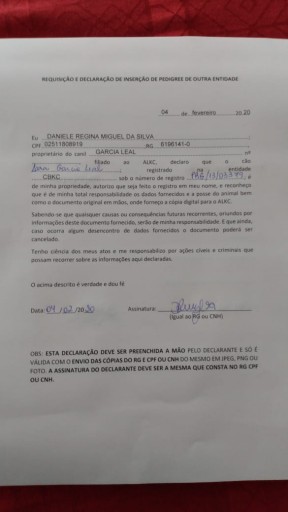 REQUISIÇÃO E DECLARAÇÃO DE INSERÇÃO DE PEDIGREE DE OUTRA ENTIDADE
04 de fevereiro 20 20
Eu DANIELE REGINA MIGUEL DA SILVA
CPF 02511808919 RG 6196141-0
proprietária do canil GARCIA LEAL nº
filiado ao AUKC, declaro que o cão
Garcia Leal, registrado na entidade
CBKC sob o número de registro, é
de minha propriedade, autorizo que seja feito o registro em meu nome, e reconheço
que é de minha total responsabilidade os dados fornecidos e a posse do animal bem
como o documento original em mãos, onde forneço a cópia digital para o AUKC.
Sabendo-se que quaisquer causas ou consequências futuras recorrentes, oriundos por
informações deste documento fornecido, serão de minha responsabilidade. E que ainda,
caso ocorra algum desencontro de dados fornecidos o documento poderá ser
cancelado.
Tenho ciência dos meus atos e me responsabilizo por ações cíveis e criminais que
possam recorrer sobre as informações aqui declaradas.
O acima descrito é verdade e dou fé
Data: 04 / 02 /20 20 Assinatura:
(Igual ao RG ou CNH)
OBS: ESTA DECLARAÇÃO DEVE SER PREENCHIDA A MÃO PELO DECLARANTE E SÓ É
VÁLIDA COM O ENVIO DAS CÓPIAS DO RG E CPF OU CNH DO MESMO EM JPEG, PNG OU
FOTO. A ASSINATURA DO DECLARANTE DEVE SER A MESMA QUE CONSTA NO RG CPF
OU CNH.